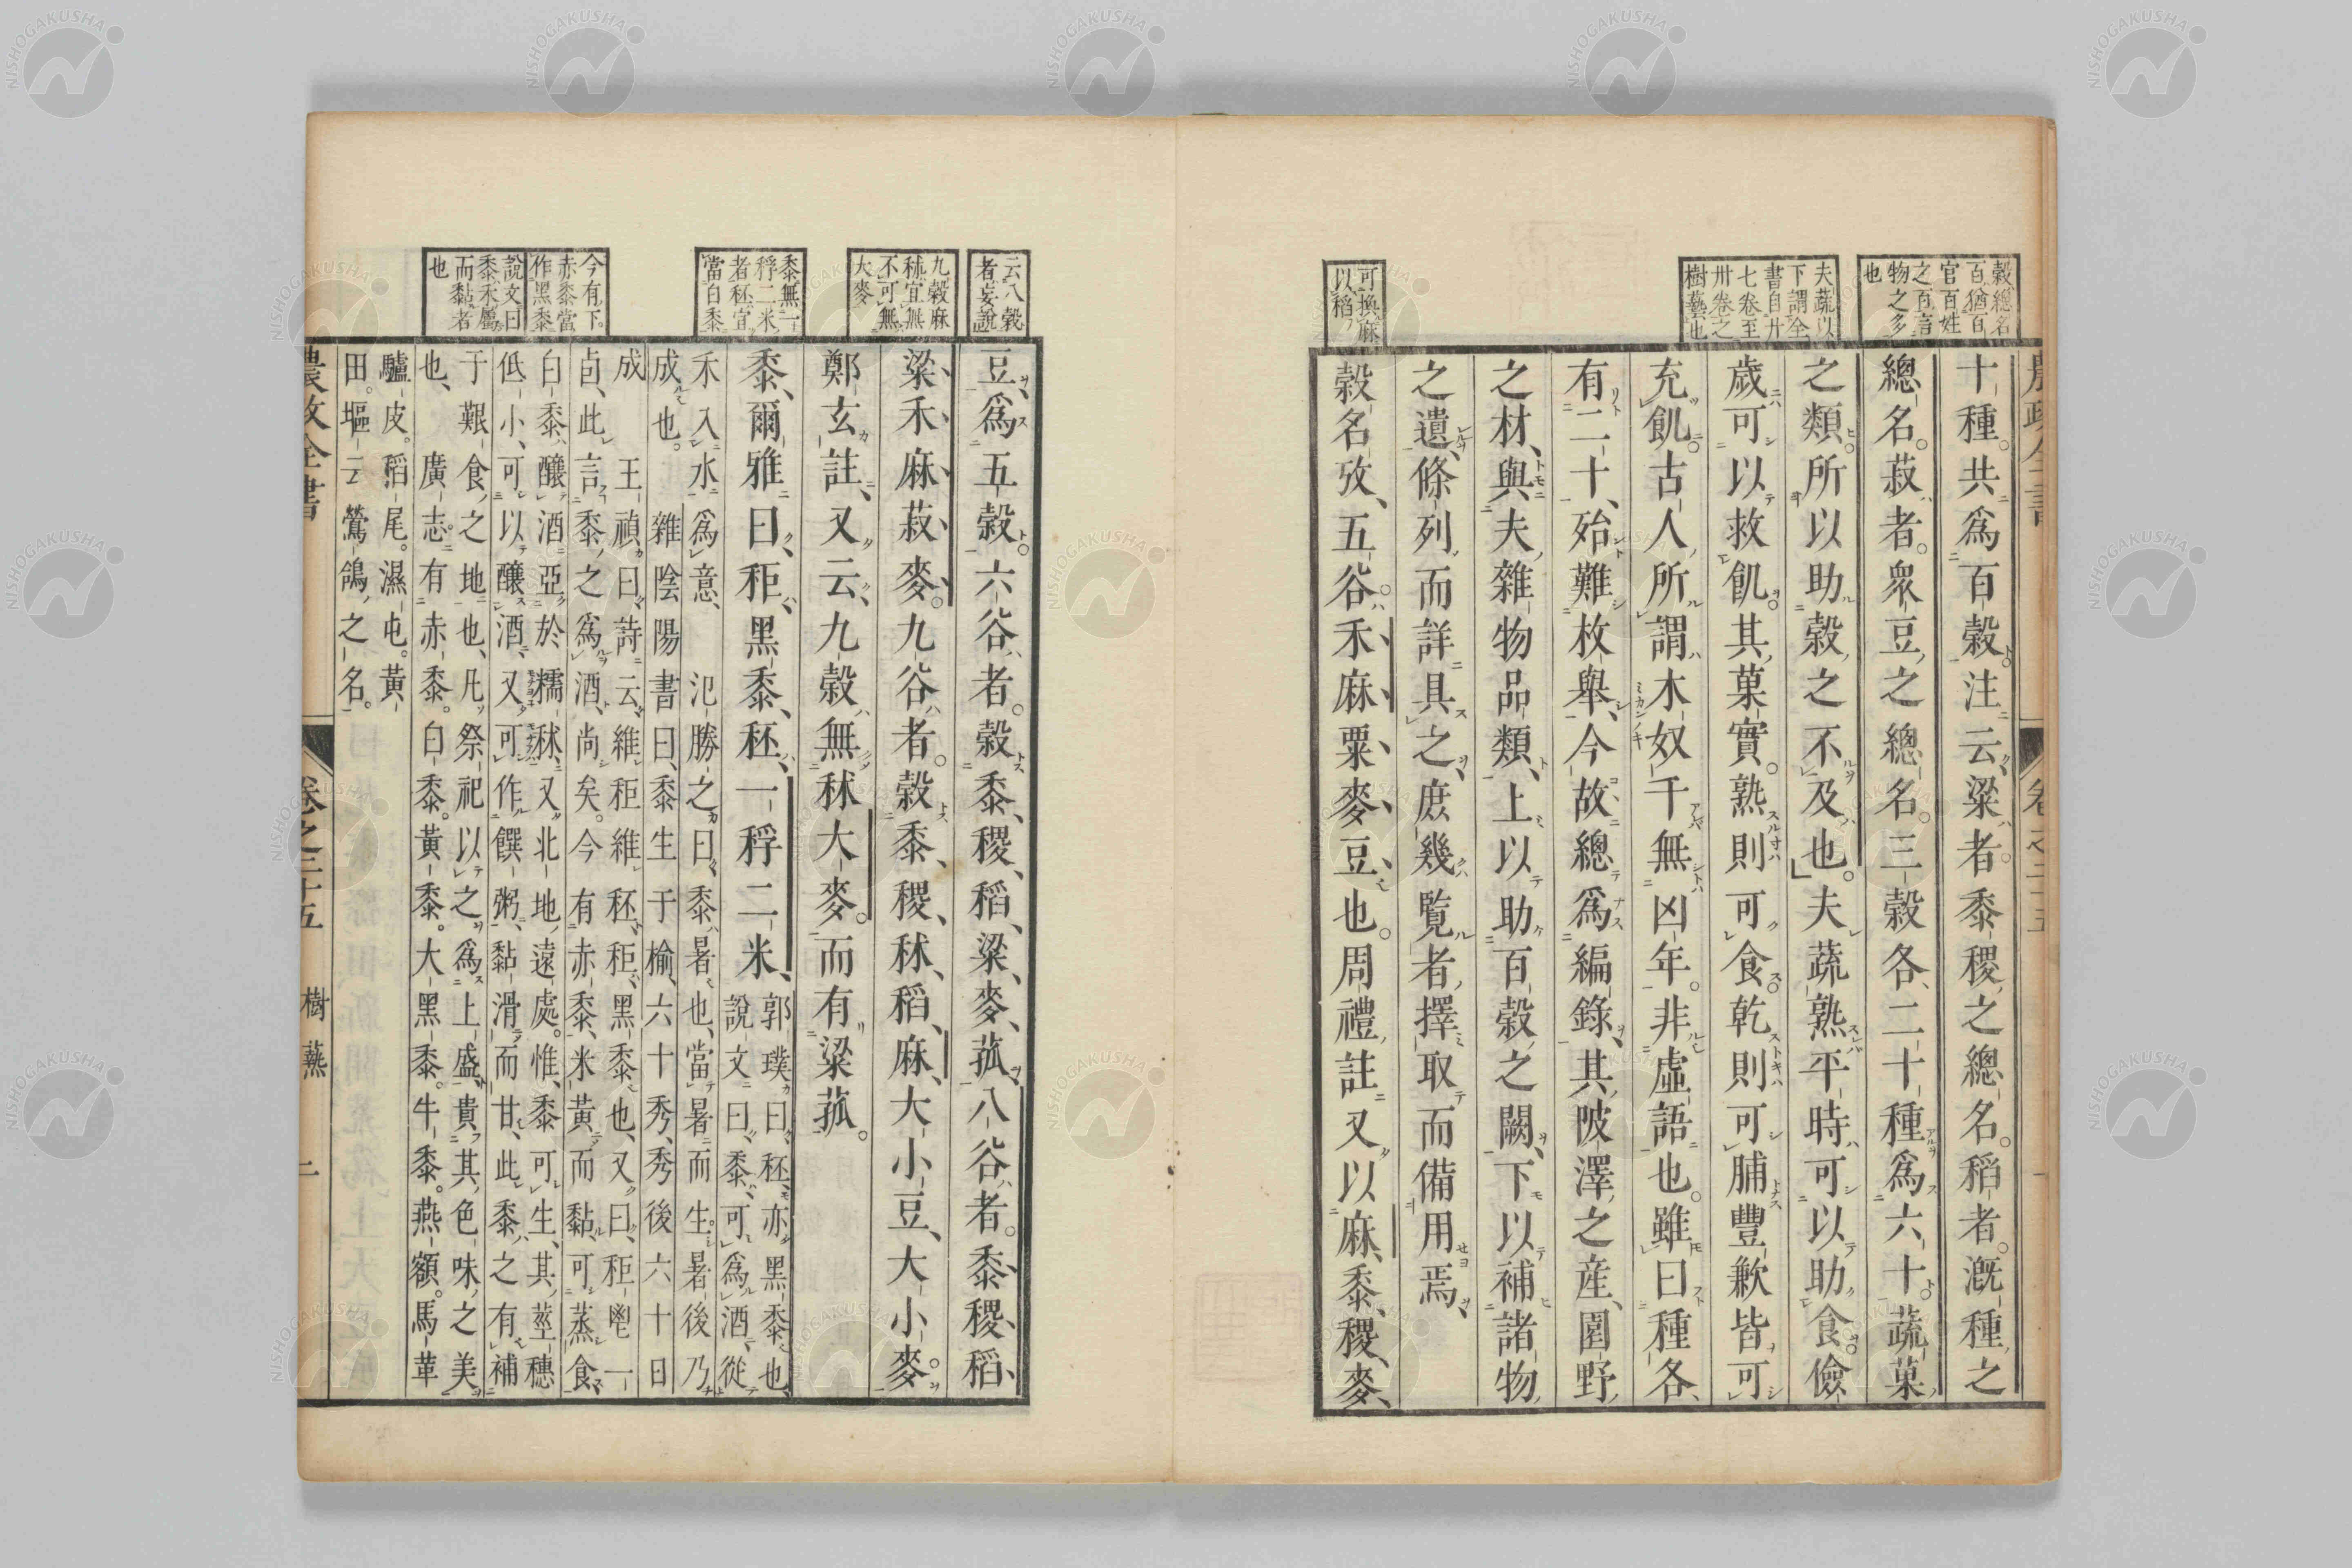 穀總名
百猶百
官百姓
之百言
物之多
也
夫蔬以
下謂全
書自廿
七卷至
卅卷之
樹藝也
可換麻
以稻
十種。共爲百穀。注云、粱者。黍稷之總名。稻者。漑種之
總名。菽者。衆豆之總名。三穀各二十種爲六十。蔬菓
之類。所以助穀之不及也。夫蔬熟平時可以助食。儉
歲可以救飢。其菓實。熟則可食。乾則可脯。豐歉皆可
充飢。古人所謂木奴千無凶年。非虛語也。雖曰種各
有二十、殆難枚舉、今故總爲編錄、其陂澤之産、園野
之材、與夫雜物品類、上以助百穀之闕、下以補諸物
之遺、條列而詳具之、庶幾覧者、擇取而備用焉、
穀名攷、五谷。禾麻粟麥豆也。周禮註又以麻、黍、稷、麥、
云八穀
者妄說
九穀麻
秫宜無
不可無
大麥
黍無一
稃二米
者秠宜
當白黍
今有下
赤黍當
作黑黍
說文曰
黍禾屬
而黏者
也
豆、爲五穀。六谷者。穀黍、稷、稻、粱、麥、菰、八谷者。黍、稷、稻、
粱、禾、麻、菽、麥。九谷者。穀黍、稷、秫、稻、麻、大小豆、大小麥。
鄭玄註、又云、九穀無秫大麥。而有粱菰。
黍、爾雅曰、秬、黑黍、秠、一稃二米、
郭璞曰、秠、亦黑黍也、
說文曰、黍、可爲酒、從
禾入水爲意、 氾勝之曰、黍、暑也、當暑而生。暑後乃
成也。 雜陰陽書曰、黍生于榆、六十秀、秀後六十日
成 王禎曰、詩云、維秬維秠、秬、黑黍也、又曰、秬鬯一
卣、此言黍之爲酒、尚矣。今有赤黍、米黃而黏、可蒸食、
白黍釀酒、亞於糯秫、又北地遠處。惟黍可生、其莖穗
低小、可以釀酒、又可作饌粥、黏滑而甘、此黍之有補
于艱食之地也、凡祭祀以之爲上盛、貴其色味之美
也、 廣志。有赤黍。白黍。黃黍。大黑黍。牛黍。燕頷。馬革
驢皮。稻尾。濕屯。黃
田。堰云鶩鴿之名。
農政全書
卷之二十五
樹蓺
二
NISHOGAKUSHA